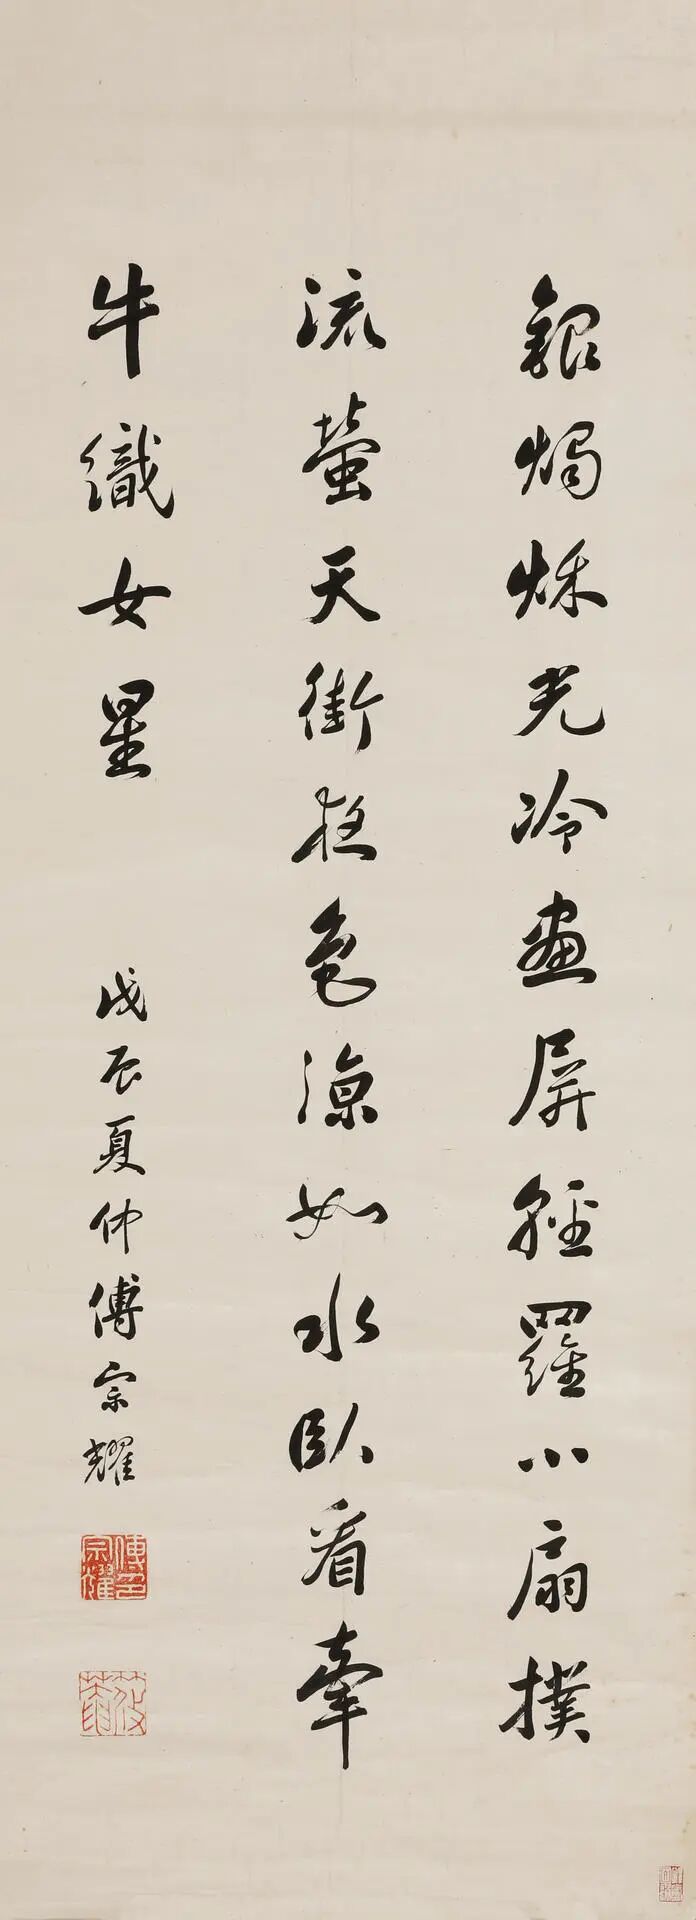 銀燭秌光冷畫屏輕羅小扇撲
流螢天街夜色涼如水臥看牽
牛織女星
戊辰夏仲傅宗耀
傅宗耀印